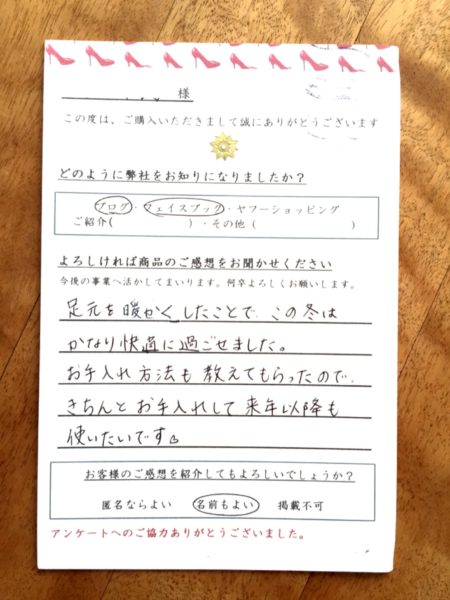 様
この度は、ご購入いただきまして誠にありがとうございます
どのように弊社をお知りになりましたか？
ブログ・フェイスブック・ヤフーショッピング
ご紹介(　　　　　　　)・その他（　　　　　　　　）
よろしければ商品のご感想をお聞かせください
今後の事業へ活かしてまいります。何卒よろしくお願いします。
足元を暖かくしたことで、この冬は
かなり快適に過ごせました。
お手入れ方法も教えてもらったので、
きちんとお手入れして来年以降も
使いたいです
お客様のご感想を紹介してもよろしいでしょうか？
匿名ならよい　名前もよい　掲載不可
アンケートへのご協力ありがとうございました。